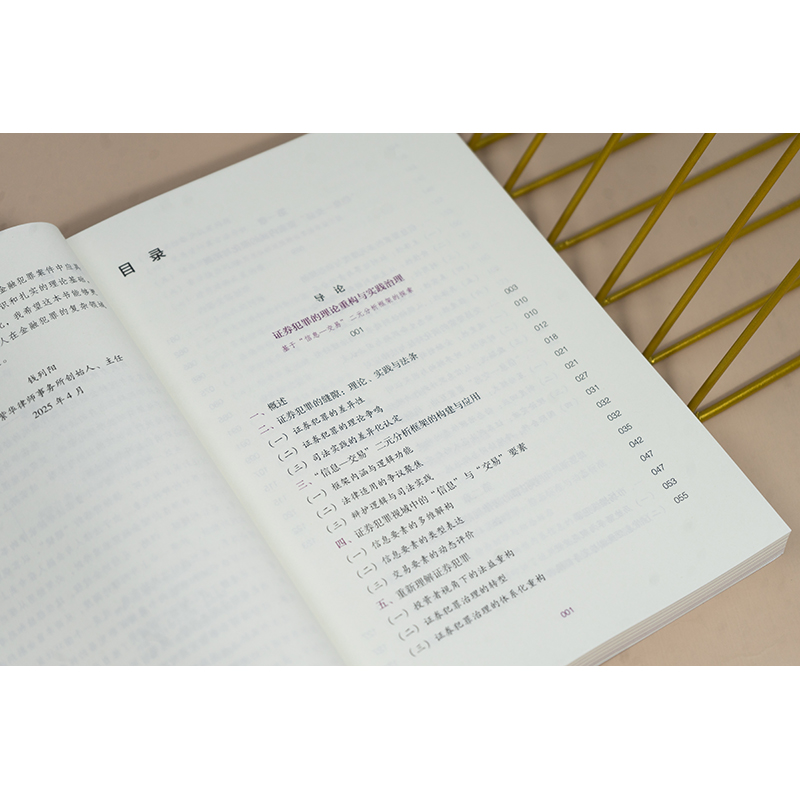 金融犯罪案件中应具
识和扎实的理论基础,
化,我希望这本书能够更
人在金融犯罪的复杂领域
。
钱列阳
紫华律师事务所创始人、主任
2025年4月
目 录
导 论
证券犯罪的理论重构与实践治理
基于“信息—交易”二元分析框架的探索
001
一、概述 003
二、证券犯罪的缝隙:理论、实践与法条 010
(一)证券犯罪的差异性 010
(二)证券犯罪的理论争鸣 012
(三)司法实践的差异化认定 018
三、“信息—交易”二元分析框架的构建与应用 021
(一)框架内涵与逻辑功能 021
(二)法律适用的争议聚焦 027
(三)辩护逻辑与司法实践 031
四、证券犯罪视域中的“信息”与“交易”要素 032
(一)信息要素的多维解构 032
(二)信息要素的类型表达 035
(三)交易要素的动态评价 042
五、重新理解证券犯罪 047
(一)投资者视角下的法益重构 047
(二)证券犯罪治理的转型 053
(三)证券犯罪治理的体系化重构 055
001